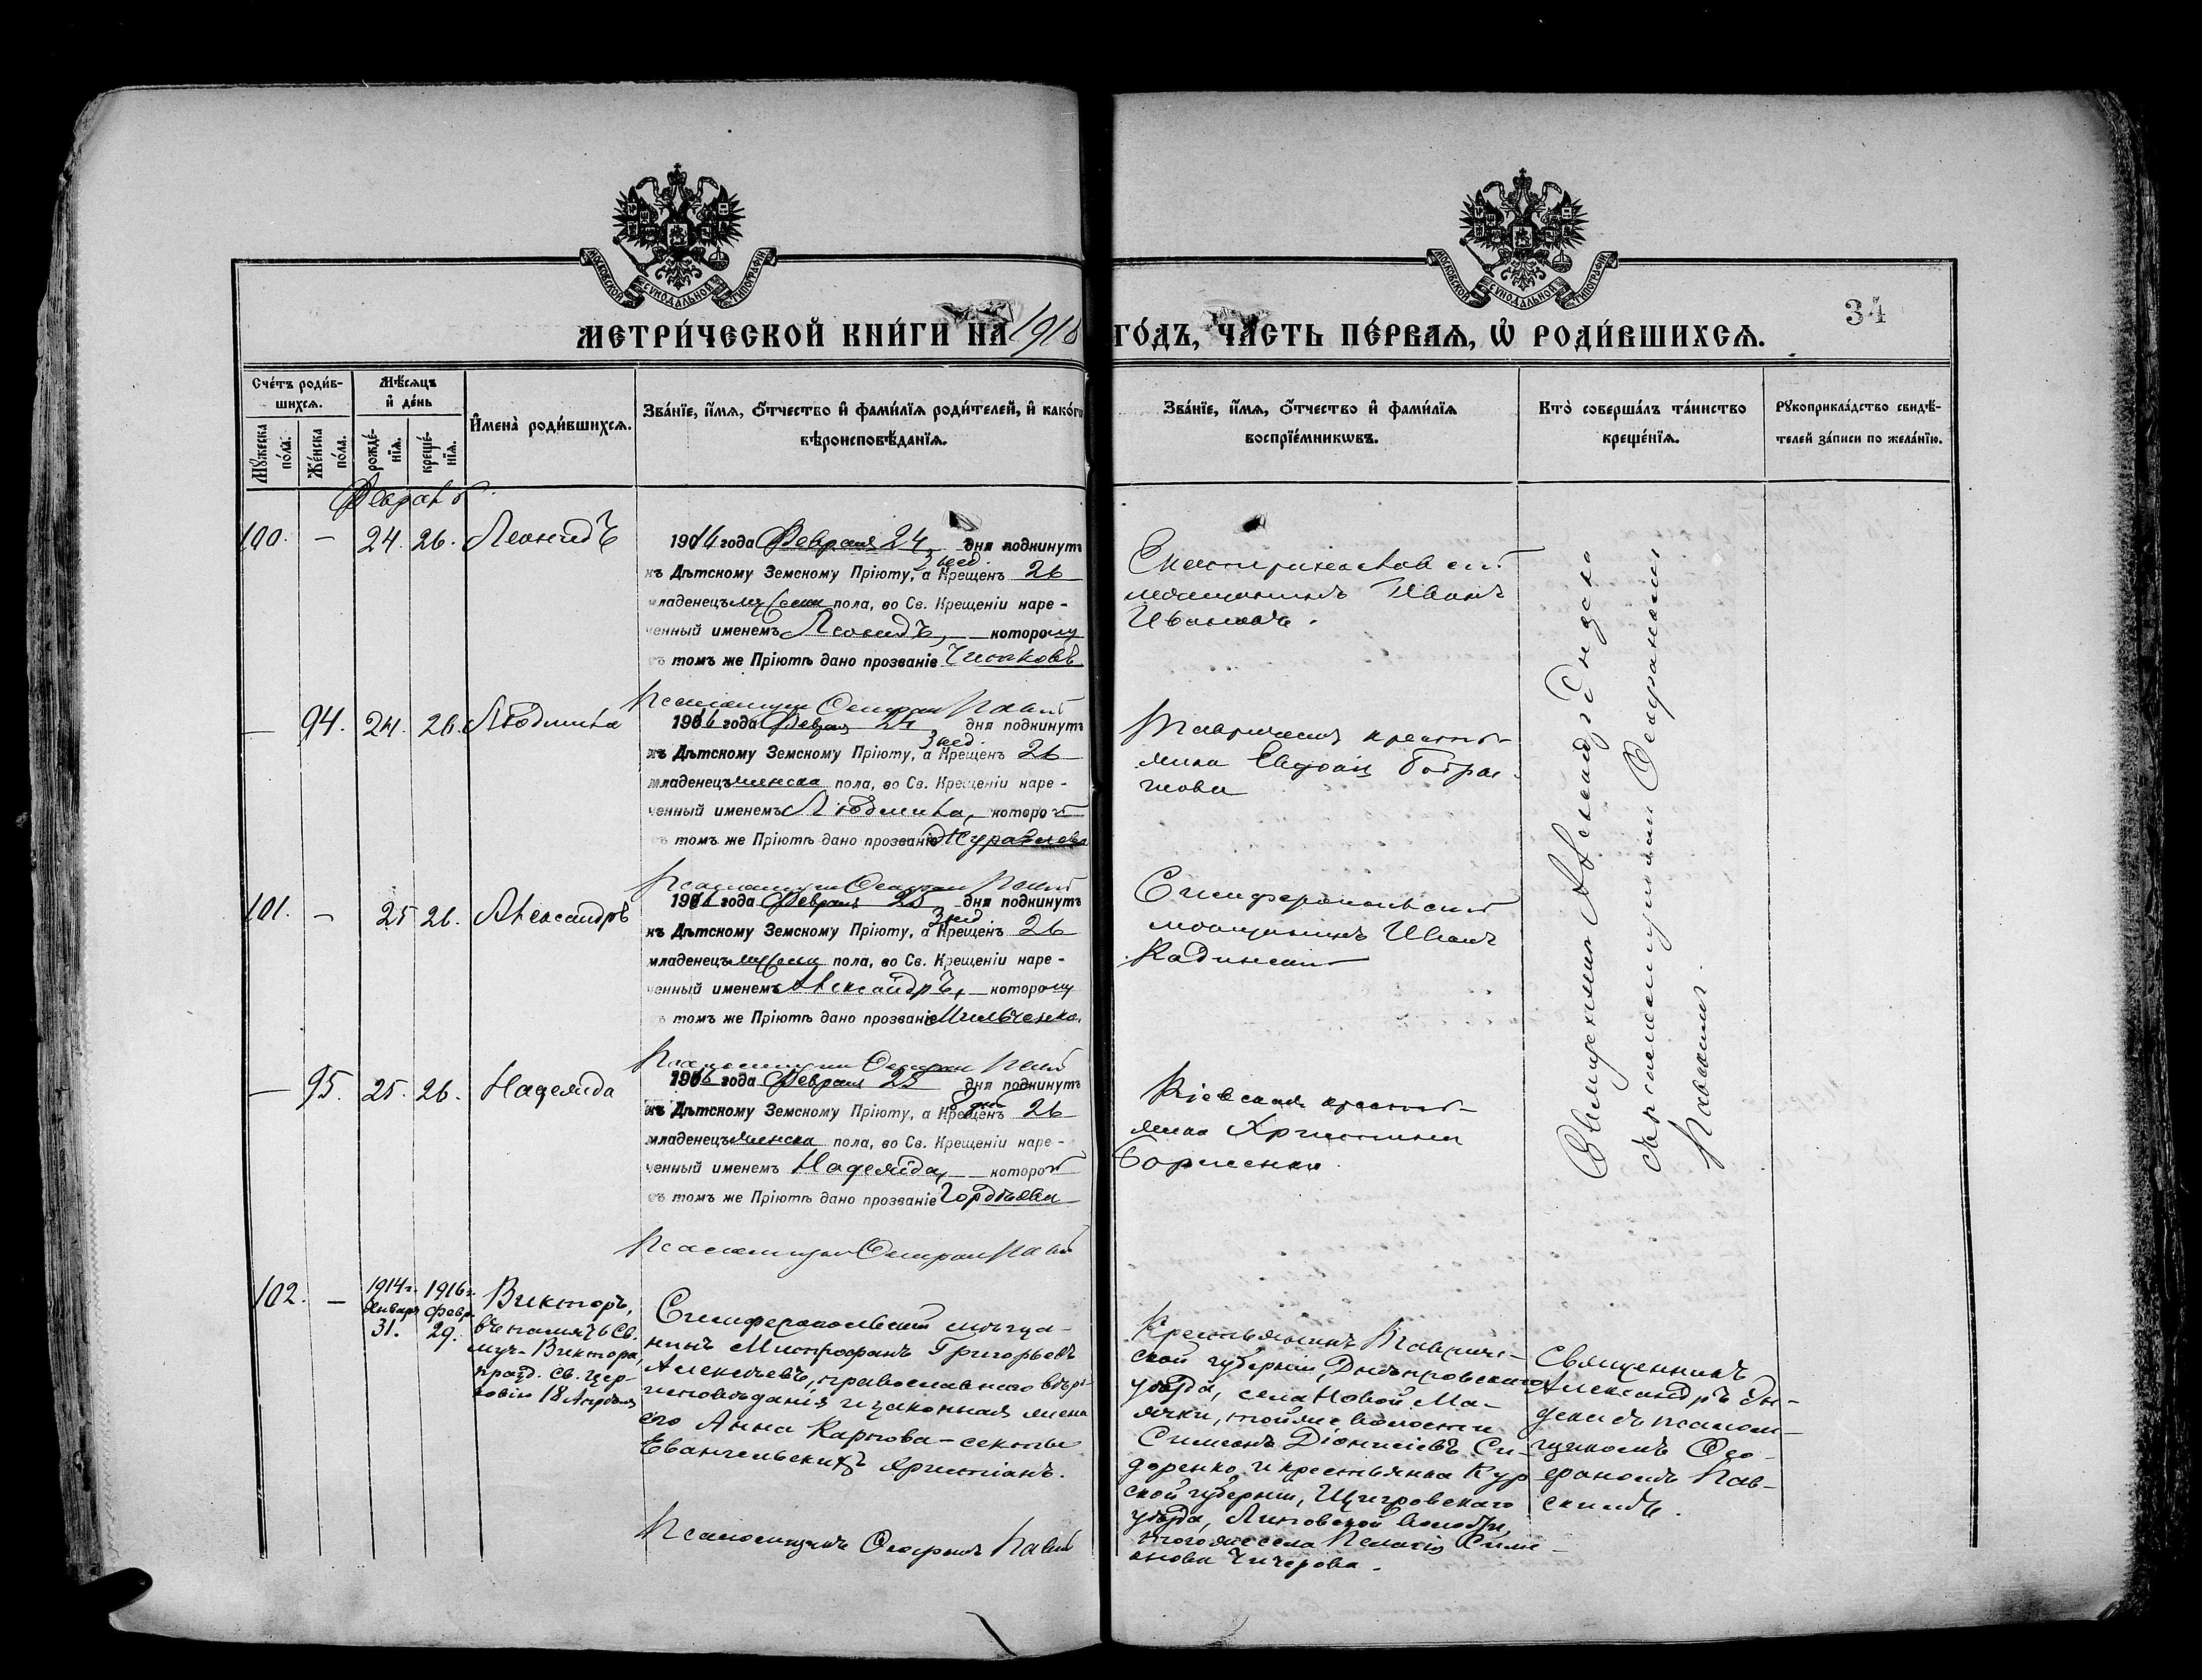 МОСКОВСКОЙ СѴНОДАЛЬНОЙ ТИПОГРАФІИ
МОСКОВСКОЙ СѴНОДАЛЬНОЙ ТИПОГРАФІИ
34
МЕТРИ́ЧЕСКОЙ КНИ́ГИ НА 1916 ГО́ДЪ, ЧА́СТЬ ПЕ́РВАЯ, Ѡ҆ РОДИ́ВШИХСЯ.
Сче́тъ роди́в-
шихся.
Мꙋ́жеска по́ла.
Же́нска по́ла.
Мѣ́сяцъ
и҆ де́нь
рожде́-
нїя.
креще́-
нїя.
И҆мена̀ роди́вшихся.
Зва́нїе, и҆́мя, ѻ҆́тчество и҆ фами́лїя роди́телей, и҆ како́гѡ
вѣроисповѣ́данїя.
Зва́нїе, и҆́мя, ѻ҆́тчество и҆ фами́лїя
воспрїе́мникѡвъ.
Кто̀ соверша́лъ та́инство
креще́нїя.
Рꙋкоприкла́дство свидѣ́-
телей за́писи по жела́нїю.
Февраль
100. — 24. 26. Леонидъ
1916 года Февраля 24 дня подкинутъ
3 нед.
къ Дѣтскому Земскому Пріюту, а Крещенъ 26
младенецъ мужеска пола, во Св. Крещеніи наре-
ченный именемъ Леонидъ, которому
въ томъ же Пріютѣ дано прозваніе
мѣщанинъ Иванъ
Ивановъ.
— 94. 24. 26. Людмила
1916 года Февраля 24 дня подкинутъ
3 нед.
къ Дѣтскому Земскому Пріюту, а Крещенъ 26
младенецъ женска пола, во Св. Крещеніи наре-
ченный именемъ Людмила, которой
въ томъ же Пріютѣ дано прозваніе Журавлева
крестья-
101. — 25 26. Александръ
1916 года Февраля 25 дня подкинутъ
3 нед
къ Дѣтскому Земскому Пріюту, а Крещенъ 26
младенецъ мужеска пола, во Св. Крещеніи наре-
ченный именемъ Александръ, которому
въ томъ же Пріютѣ дано прозваніе Мильченко.
Симферопольскій
мѣщанинъ Иванъ
— 95. 25. 26. Надежда
1916 года Февраля 25 дня подкинутъ
къ Дѣтскому Земскому Пріюту, а Крещенъ 26
младенецъ женска пола, во Св. Крещеніи наре-
ченный именемъ Надежда, которой
въ томъ же Пріютѣ дано прозваніе Гордѣева
Кіевская крестья-
нка Христина
Священникъ Александръ
съ псаломщикомъ
102. — 1914 г. Января 31. 1916 г. Февр. 29.
Викторъ,
въ память Св.
муч. Виктора,
празд. Св. Цер-
ковію 18 Апрѣля
Симферопольскій мѣща-
нинъ Митрофанъ Григорьевъ
Алексѣевъ, православнаго вѣро-
исповѣданія и законная жена
его Анна Карпова – секты
Евангельскихъ христіанъ.
Крестьянинъ Тавриче-
ской губерніи, Днѣпровскаго
уѣзда, села Новой Ма-
ячки, той же волости
Симеонъ Діонисіевъ Си-
доренко и крестьянка Кур
ской губерніи, Щигровскаго
уѣзда, Липовской волости,
того же села Пелагія Симе-
онова Чичерова.
Священникъ
Александръ
съ псалом-
щикомъ